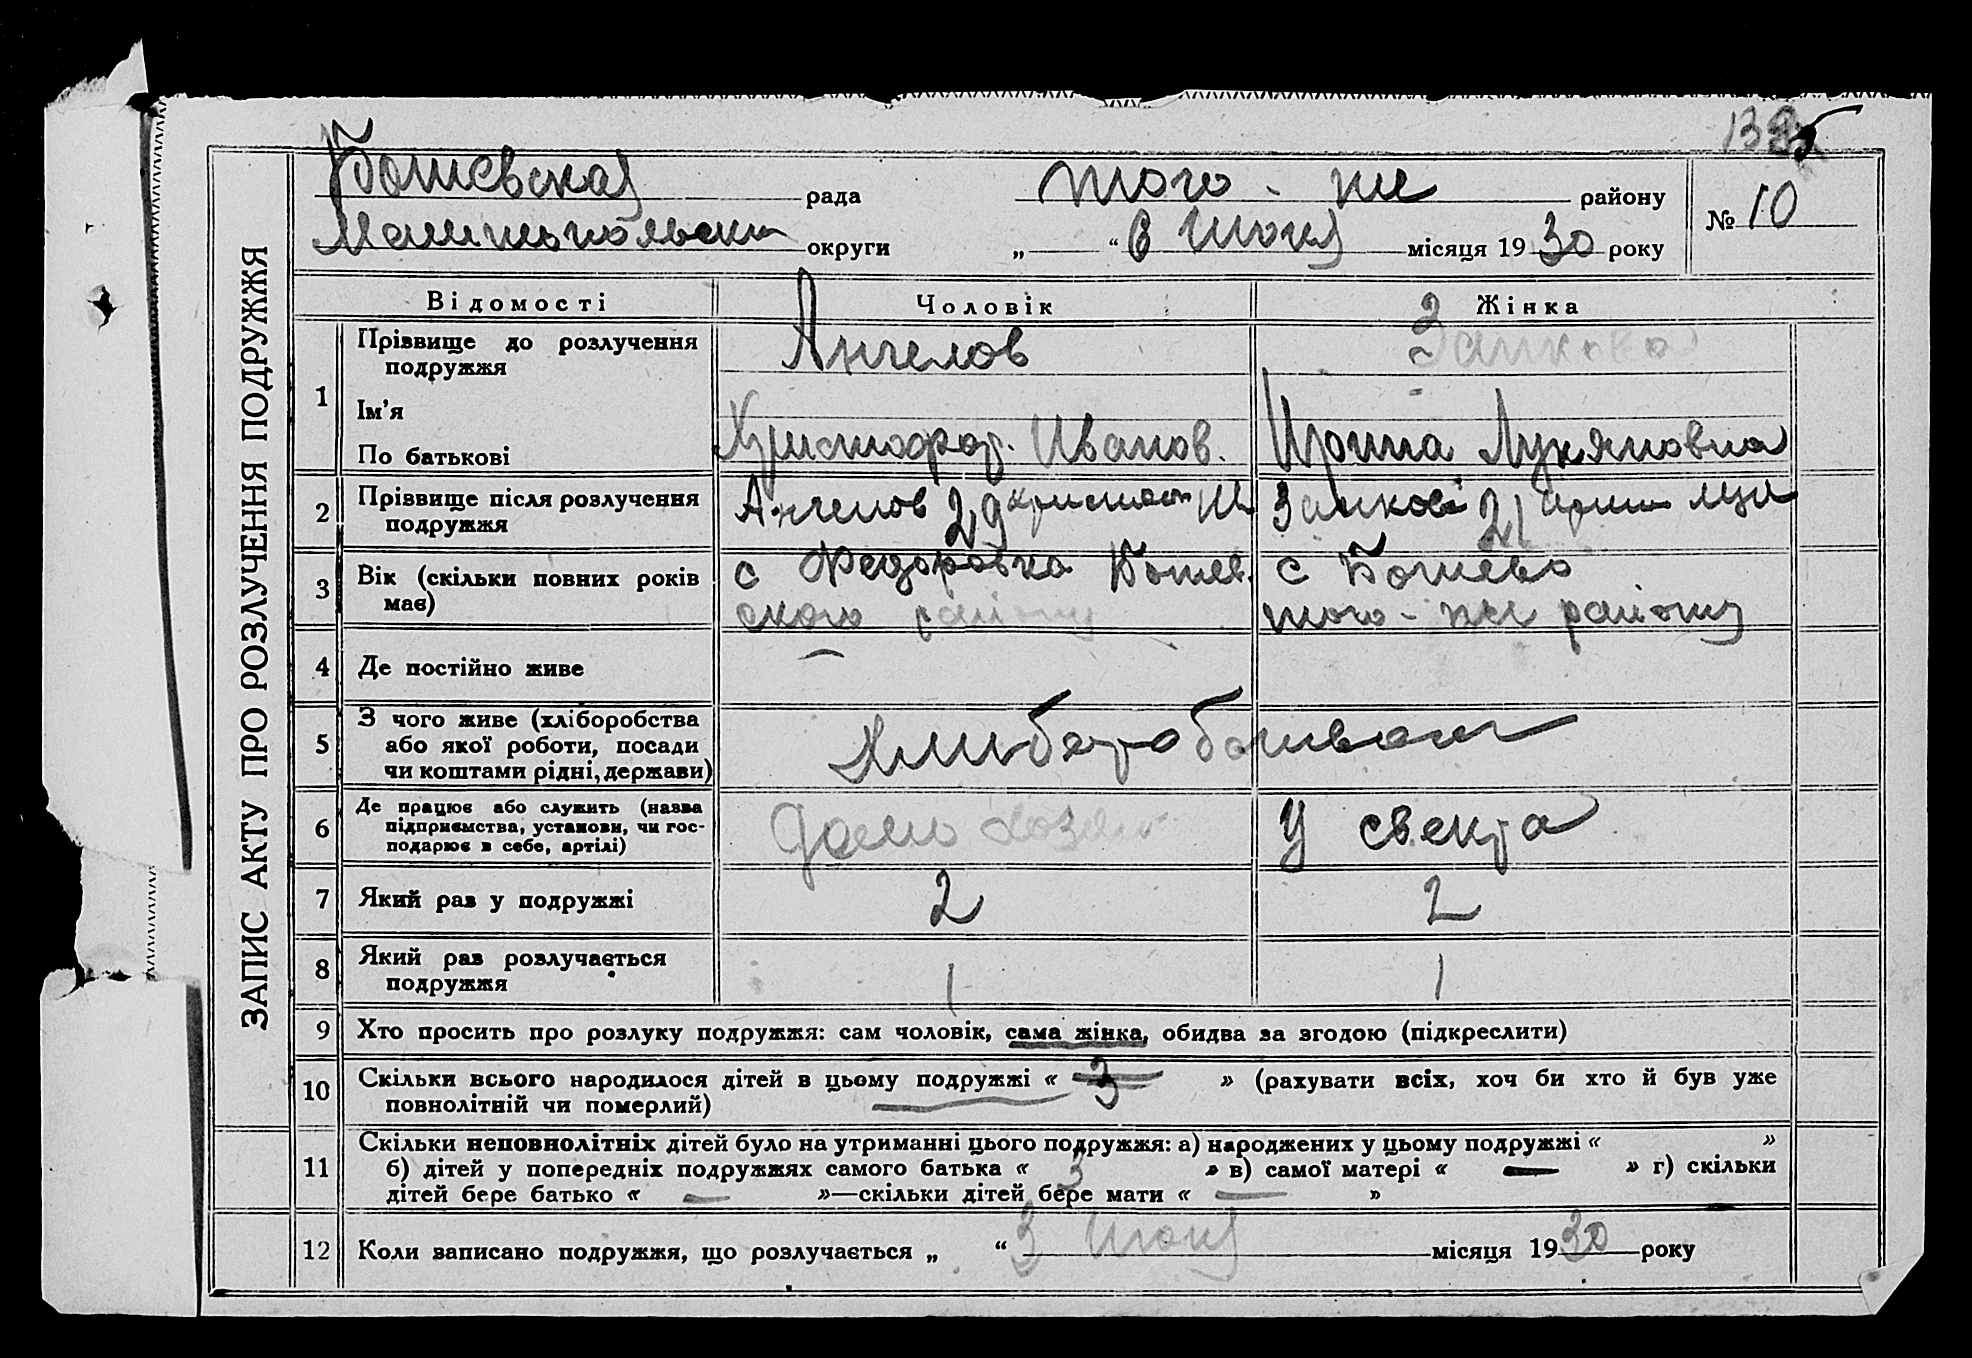 138
ЗАПИС АКТУ ПРО РОЗЛУЧЕННЯ ПОДРУЖЖЯ
рада того - же району № 10
округи „ “ 6 Июня місяця 1930 року
Відомості Чоловік Жінка
1 Прізвище до розлучення подружжя Ангелов Занкова
Ім’я
По батькові Христофор. Иванов. Ирина Лукяновна
2 Прізвище після розлучення подружжя Ангелов 29 Занкова 21
3 Вік (скільки повних років має) с Федоровка с
ского району того - же району
4 Де постійно живе
5 З чого живе (хліборобства або якої роботи, посади чи коштами рідні, держави)
6 Де працює або служить (назва підприємства, установи, чи господарює в себе, артілі) дома У свекра
7 Який раз у подружжі 2 2
8 Який раз розлучається подружжя 1 1
9 Хто просить про розлуку подружжя: сам чоловік, сама жінка, обидва за згодою (підкреслити)
10 Скільки всього народилося дітей в цьому подружжі « 3 » (рахувати всіх, хоч би хто й був уже
повнолітній чи померлий)
11 Скільки неповнолітніх дітей було на утриманні цього подружжя: а) народжених у цьому подружжі « »
б) дітей у попередніх подружжях самого батька « 3 » в) самої матері « — » г) скільки
дітей бере батько « — »—скільки дітей бере мати « — »
12 Коли записано подружжя, що розлучається „ “ 3 Июня місяця 1930 року